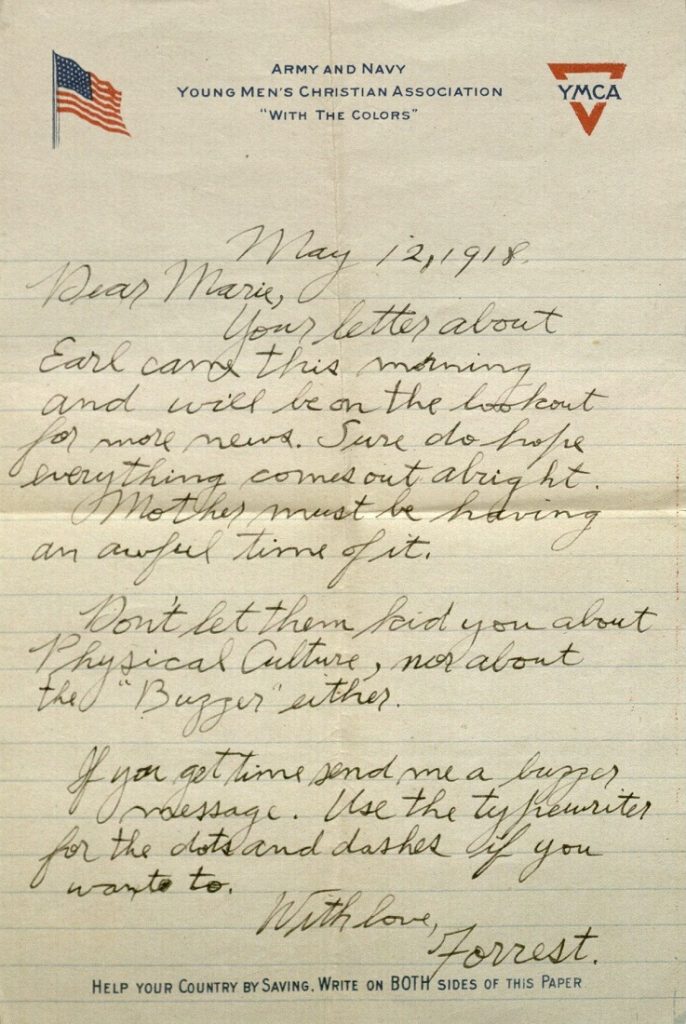 ARMY AND NAVY
YOUNG MEN'S CHRISTIAN ASSOCIATION
"WITH THE COLORS"
YMCA
May 12, 1918.
Dear Marie,
Your letter about
Earl came this morning
and will be on the lookout
for more news. Sure do hope
everything comes out alright.
Mother must be having
an awful time of it.
Don't let them kid you about
Physical Culture, nor about
the "Buzzer" either.
If you get time send me a buzzer
message. Use the typewriter
for the dots and dashes if you
want to.
With love,
Forrest.
HELP YOUR COUNTRY BY SAVING. WRITE ON BOTH SIDES OF THIS PAPER